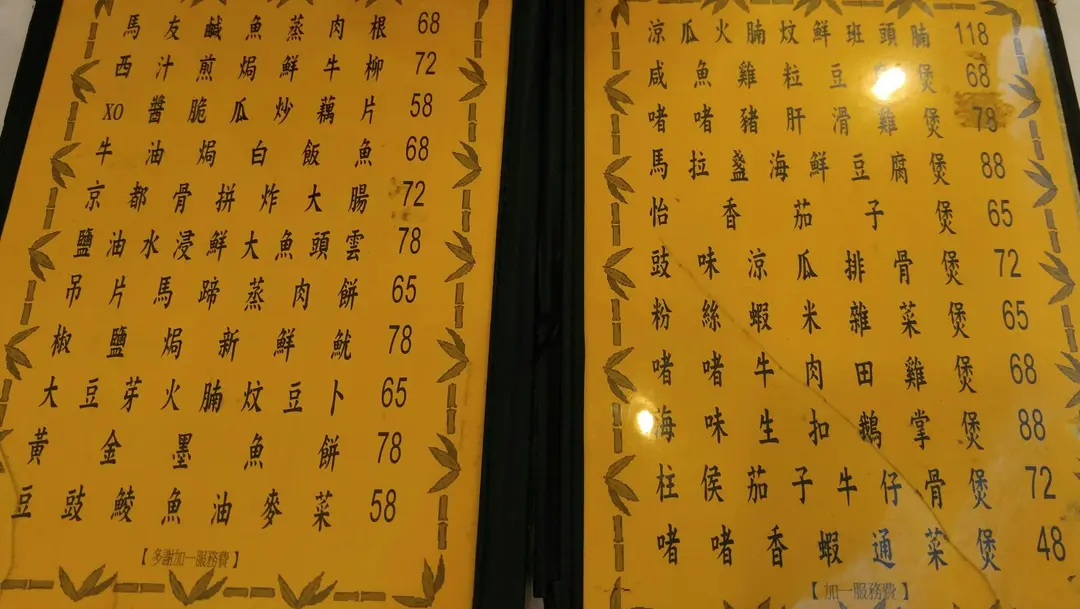 馬友鹹魚蒸肉根 68
西汁煎焗鮮牛柳 72
XO醬脆瓜炒藕片 58
牛油焗白飯魚 68
京都骨拼炸大腸 72
鹽油水浸鮮大魚頭雲 78
吊片馬蹄蒸肉餅 65
椒鹽焗新鮮魷 78
大豆芽火腩炆豆卜 65
黃金墨魚餅 78
豆豉鯪魚油麥菜 58
【多謝加一服務費】
涼瓜火腩炆鮮班頭腩 118
咸魚雞粒豆煲 68
啫啫豬肝滑雞煲 78
馬拉盞海鮮豆腐煲 88
怡香茄子煲 65
豉味涼瓜排骨煲 72
粉絲蝦米雜菜煲 65
啫啫牛肉田雞煲 68
海味生扣鵝掌煲 88
柱侯茄子牛仔骨煲 72
啫啫香蝦通菜煲 48
【加一服務費】